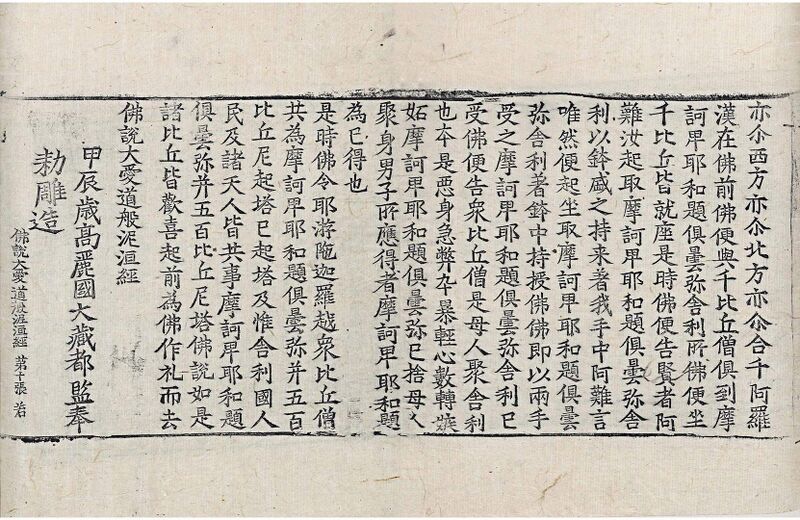 亦尒西方亦尒北方亦尒合千阿羅
漢在佛前佛便與千比丘僧俱到摩
訶卑耶和題俱曇弥舍利所佛便坐
千比丘皆就座是時佛便告賢者阿
難汝起取摩訶卑耶和題俱曇弥舍
利以鉢盛之持来著我手中阿難言
唯然便起坐取摩訶卑耶和題俱曇
弥舍利著鉢中持授佛佛即以兩手
受之摩訶卑耶和題俱曇弥舍利已
受佛便告衆比丘僧是母人聚舍利
也夲是惡身急弊卒暴輕心數轉嫉
妬摩訶卑耶和題俱曇弥已捨母人
聚身男子所應得者摩訶卑耶和題
為已得也
是時佛令耶游陁迦羅越衆比丘僧
共為摩訶卑耶和題俱曇弥并五百
比丘尼起塔已起塔及惟舍利國人
民及諸天人皆共事摩訶卑耶和題
俱曇弥并五百比丘尼塔佛說如是
諸比丘皆歡喜起前為佛作礼而去
佛說大愛道般泥洹經
甲辰歲高麗國大藏都監奉
勅雕造
佛說大愛道般泥洹經 第十張 若